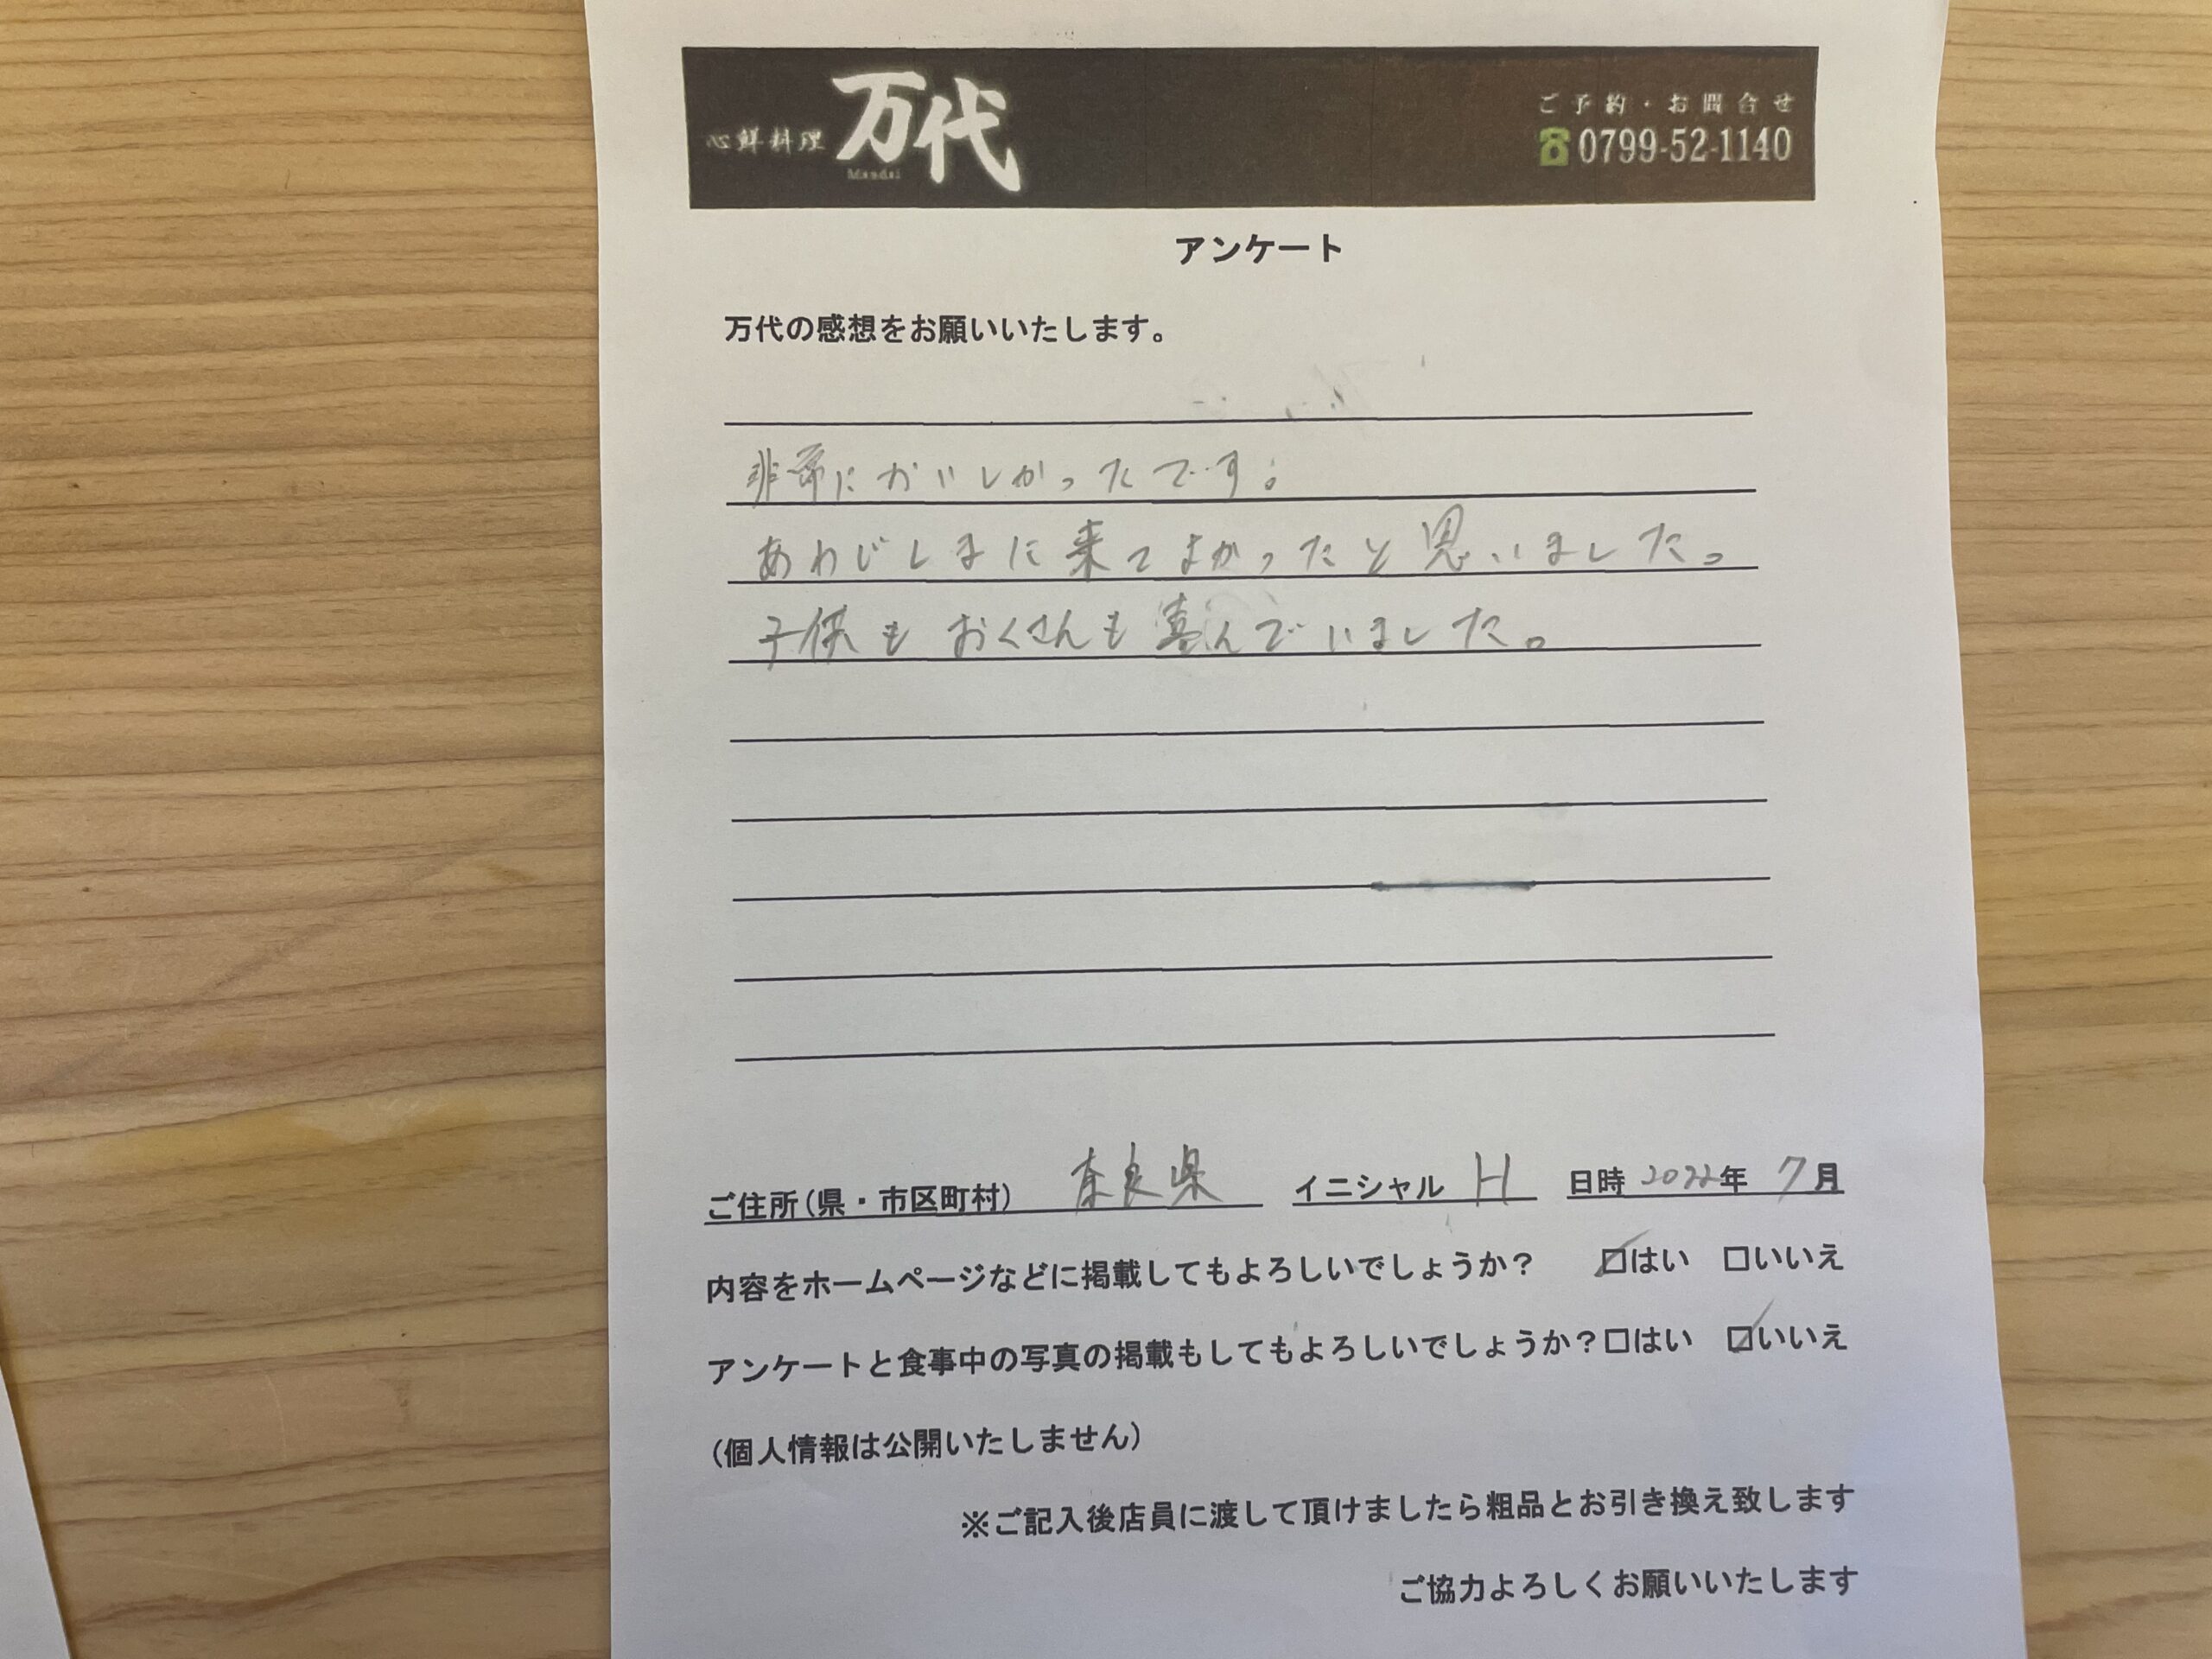 心鮮料理 万代 Mandai
ご予約・お問合せ
0799-52-1140
アンケート
万代の感想をお願いいたします。
非常においしかったです。
あわじしまに来てよかったと思いました。
子供もおくさんも喜んでいました。
ご住所(県・市区町村) 奈良県 イニシャル H 日時 2022年 7月
内容をホームページなどに掲載してもよろしいでしょうか? ☑はい □いいえ
アンケートと食事中の写真の掲載もしてもよろしいでしょうか?□はい ☑いいえ
(個人情報は公開いたしません)
※ご記入後店員に渡して頂けましたら粗品とお引き換え致します
ご協力よろしくお願いいたします